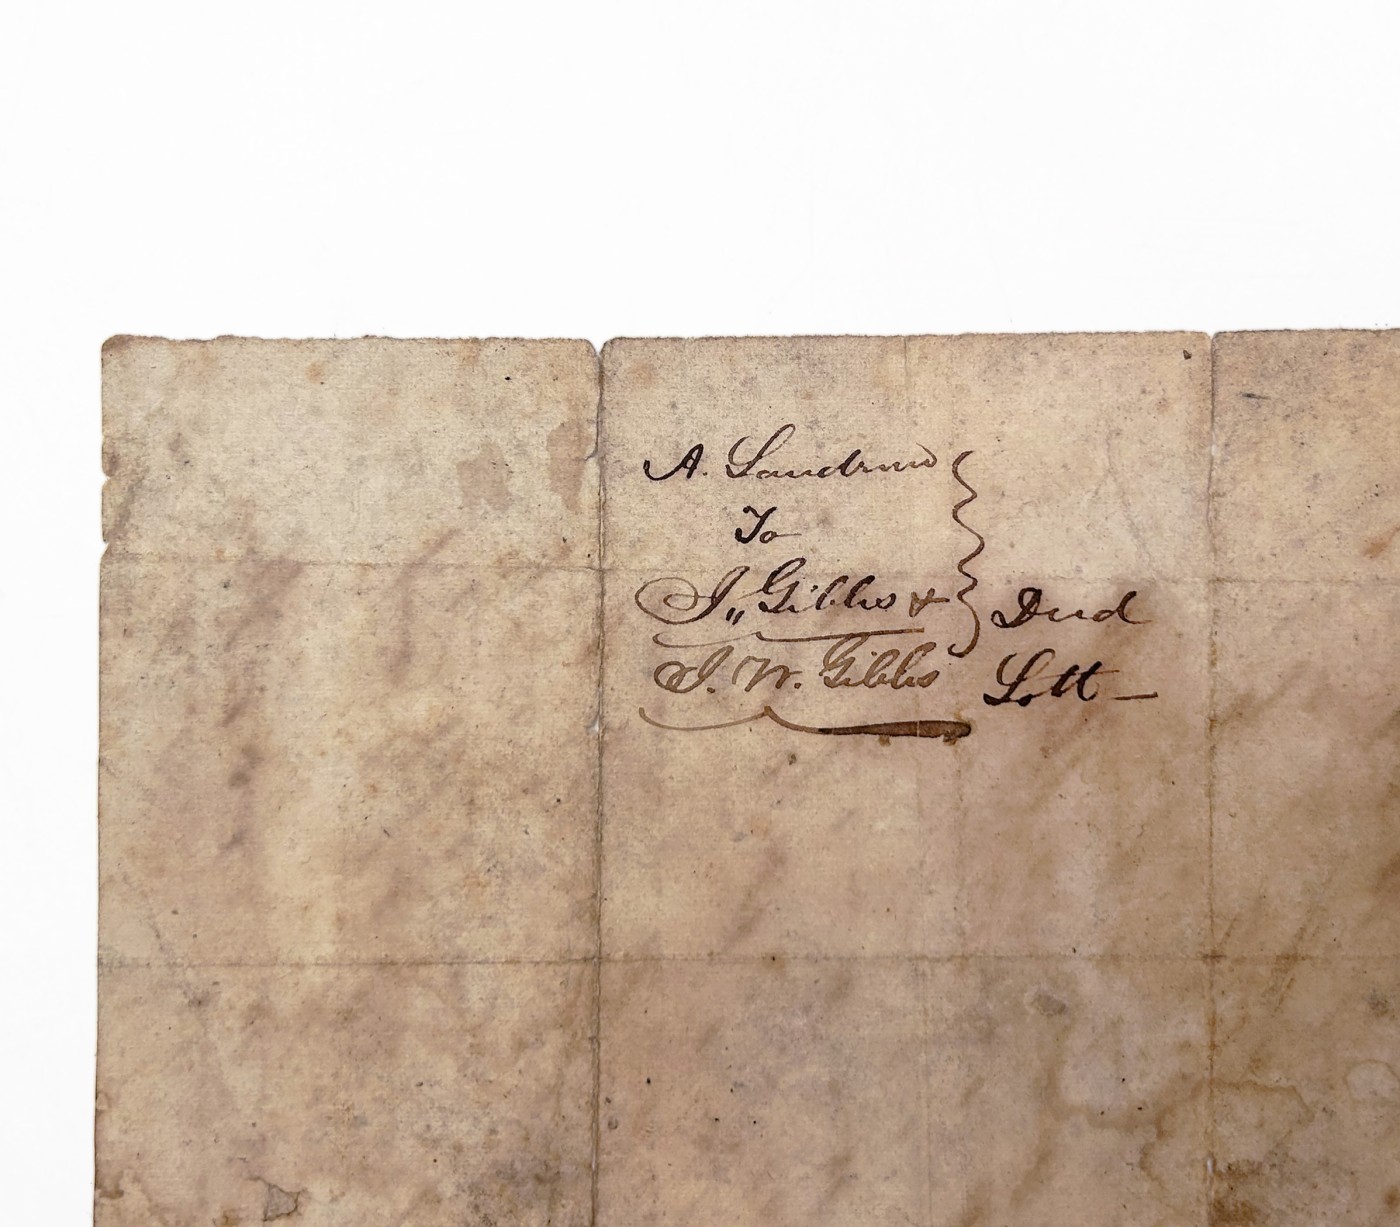 A. Landrum
To
J,, Gibbs &
J. W. Gibbs
Deed
Lott —